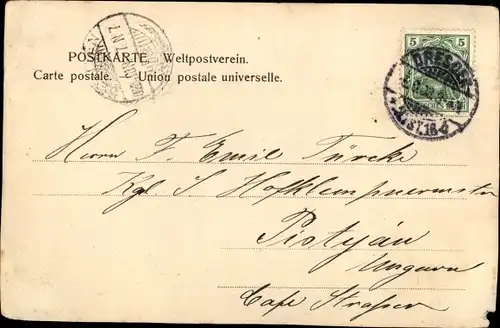 POSTKARTE. Weltpostverein.
Carte postale. Union postale universelle.
5 5
DRESDEN
ALTST. 16
Herrn F. Emil Türcke
Kgl. S. Hofklempnermstr
Pistyán
Ungarn
Cafe Strasser